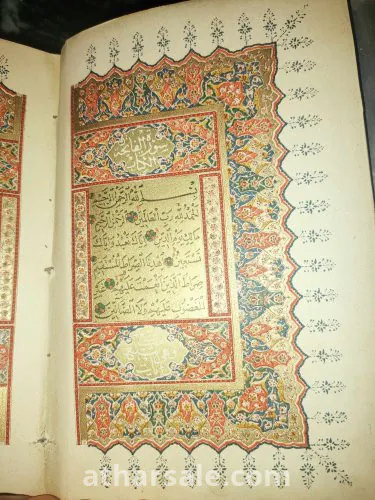 سورة الفاتحة
الكتاب
بِسْمِ اللَّهِ الرَّحْمَنِ الرَّحِيمِ
الْحَمْدُ لِلَّهِ رَبِّ الْعَالَمِينَ الرَّحْمَنِ الرَّحِيمِ
مَالِكِ يَوْمِ الدِّينِ إِيَّاكَ نَعْبُدُ وَإِيَّاكَ
نَسْتَعِينُ اهْدِنَا الصِّرَاطَ الْمُسْتَقِيمَ
صِرَاطَ الَّذِينَ أَنْعَمْتَ عَلَيْهِمْ غَيْرِ
الْمَغْضُوبِ عَلَيْهِمْ وَلَا الضَّالِّينَ
atharsale.com